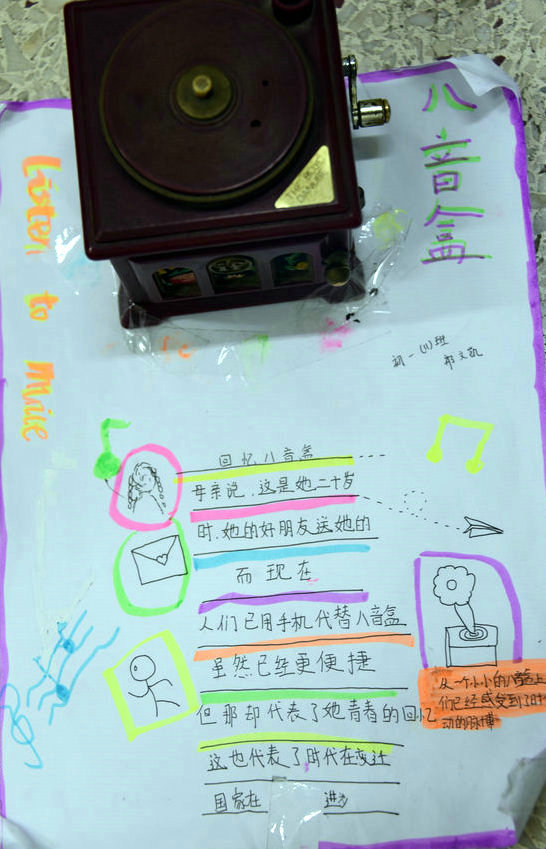 八音盒
Listen to Mice
初一(11)班
郭文凯
回忆八音盒
母亲说,这是她二十岁
时,她的好朋友送她的
而现在
人们已用手机代替八音盒
虽然已经更便捷
但那却代表了她青春的回忆
这也代表了时代在变迁
国家在 进步
从一个小小的八音盒上
们已经感受到了时
动的脉博